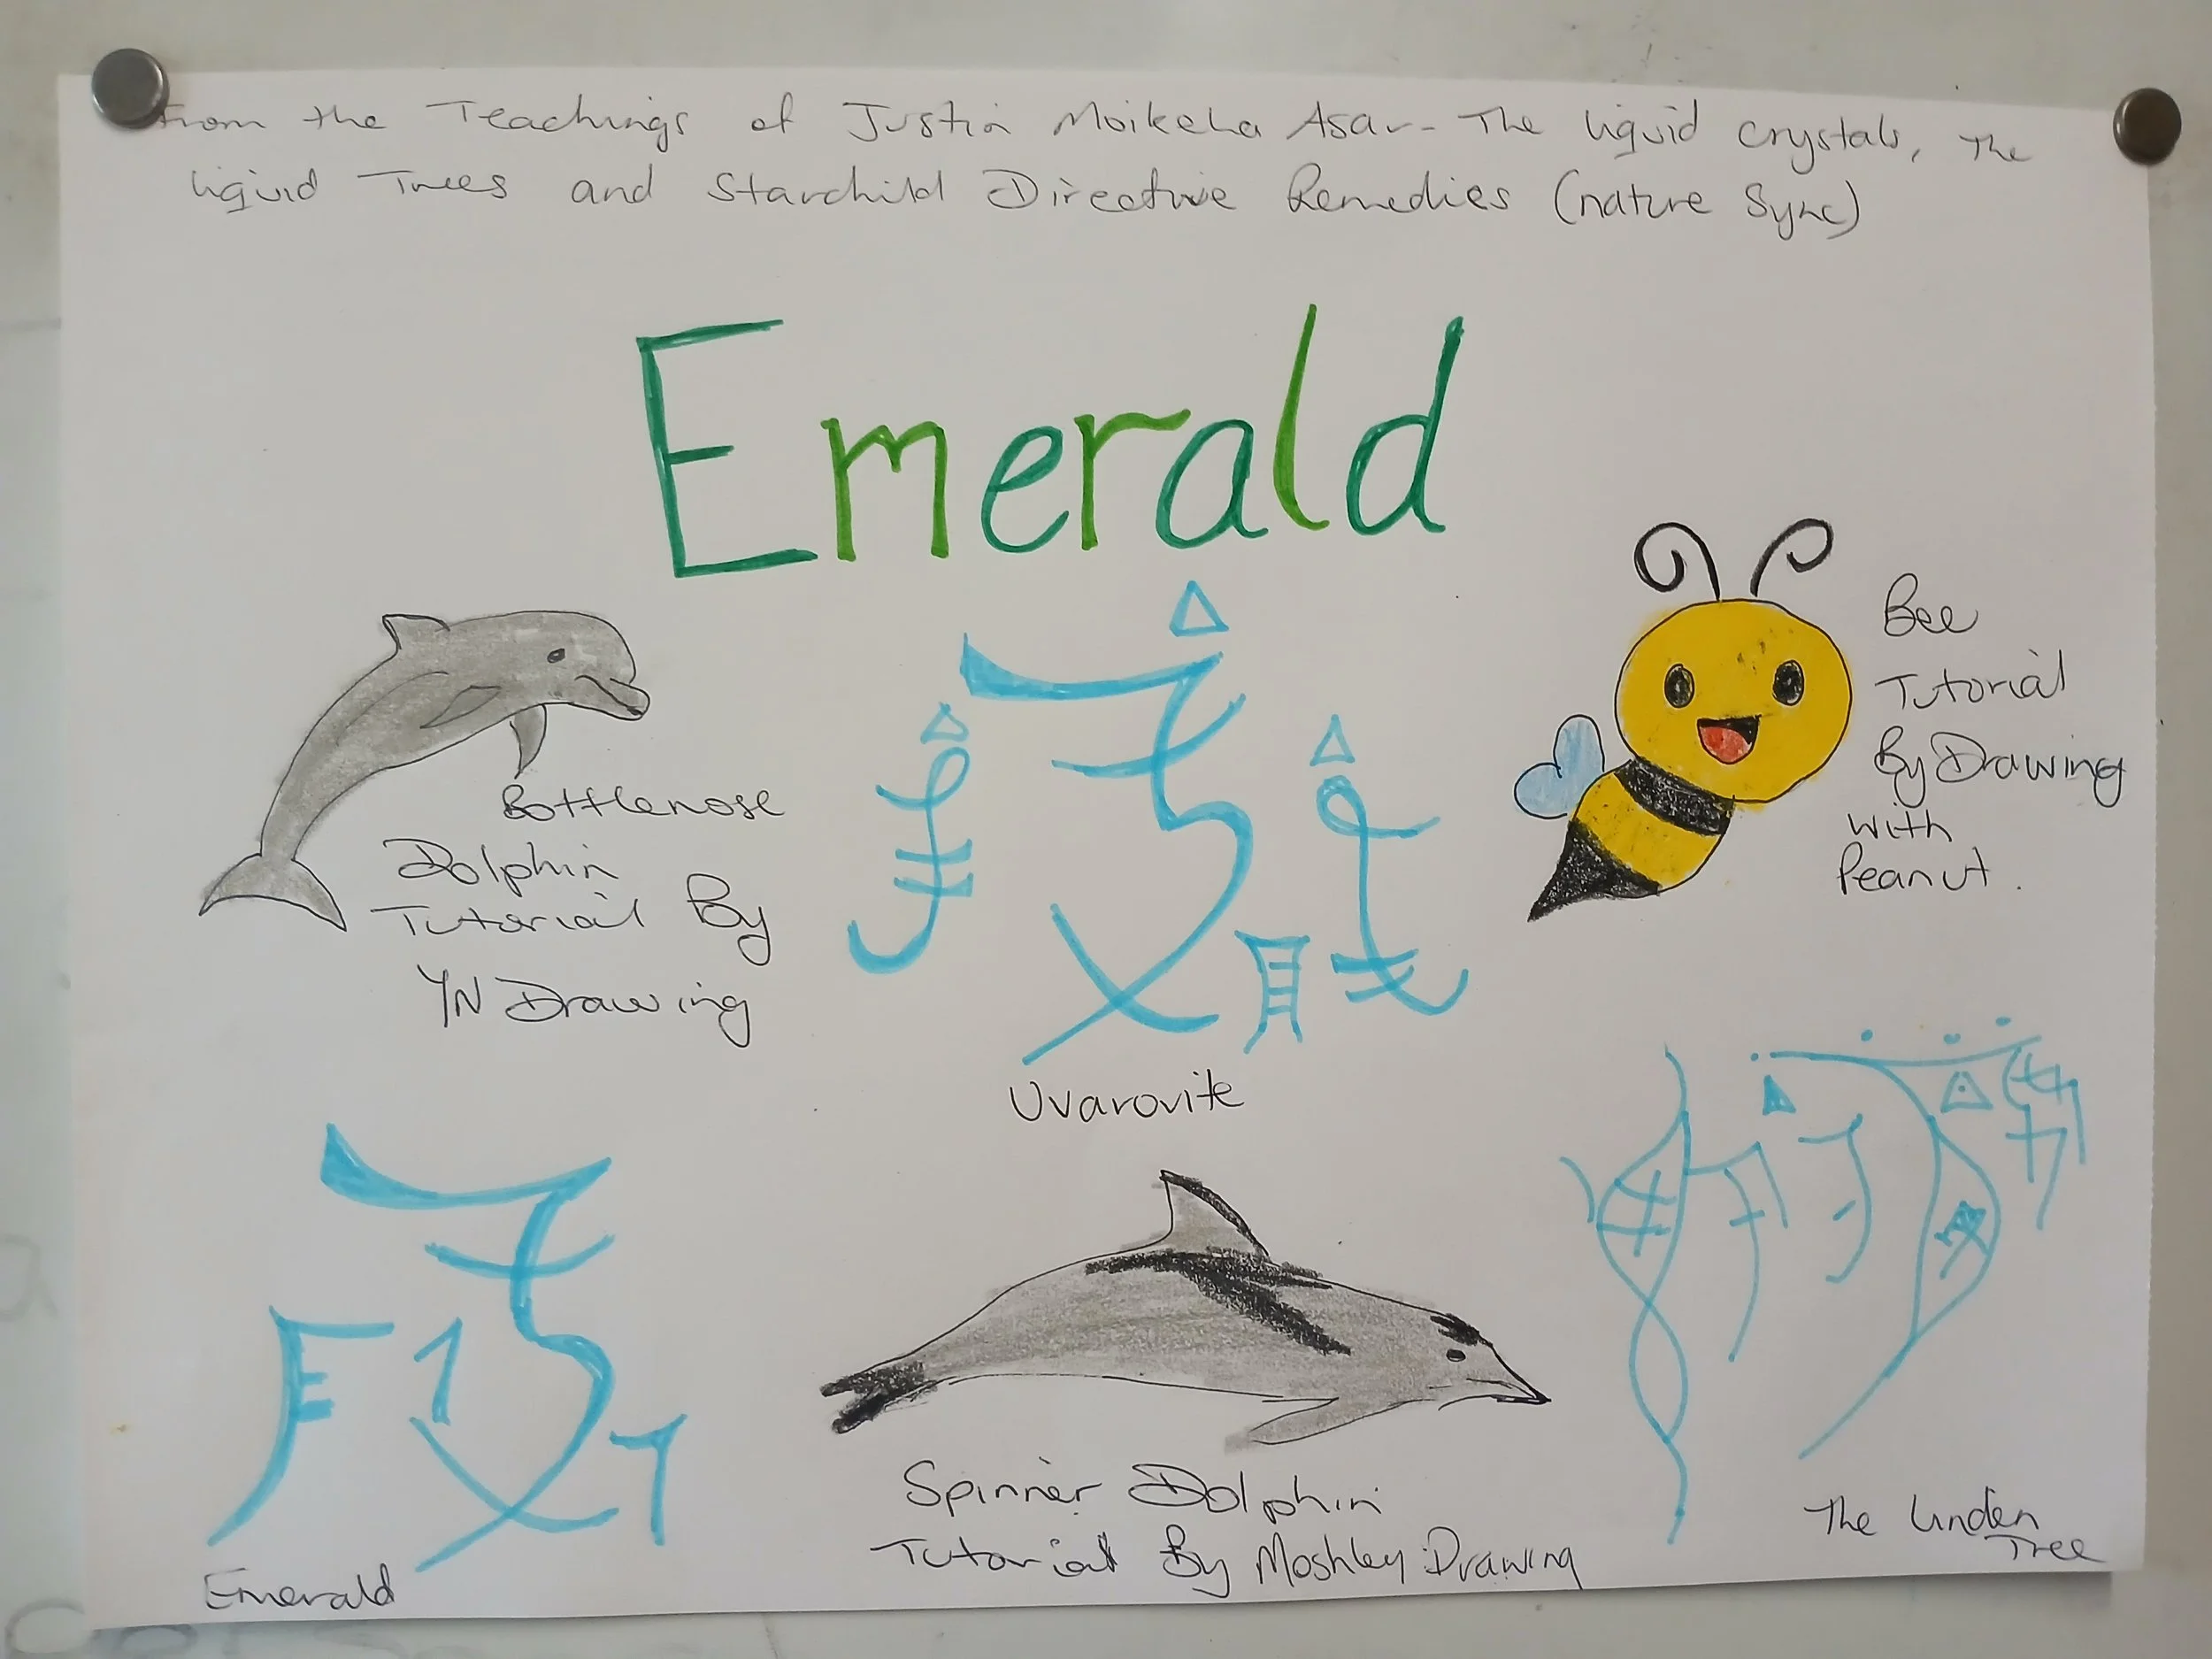 From the Teachings of Justin Moikeha Asar - The liquid crystals, The
liquid Trees and Starchild Directive Remedies (nature Sync)
Emerald
Bee
Tutorial
By Drawing
with
Peanut.
Bottlenose
Dolphin
Tutorial By
YN Drawing
Uvarovite
Emerald
Spinner Dolphin
Tutorial By Moshley Drawing
The Linden
Tree